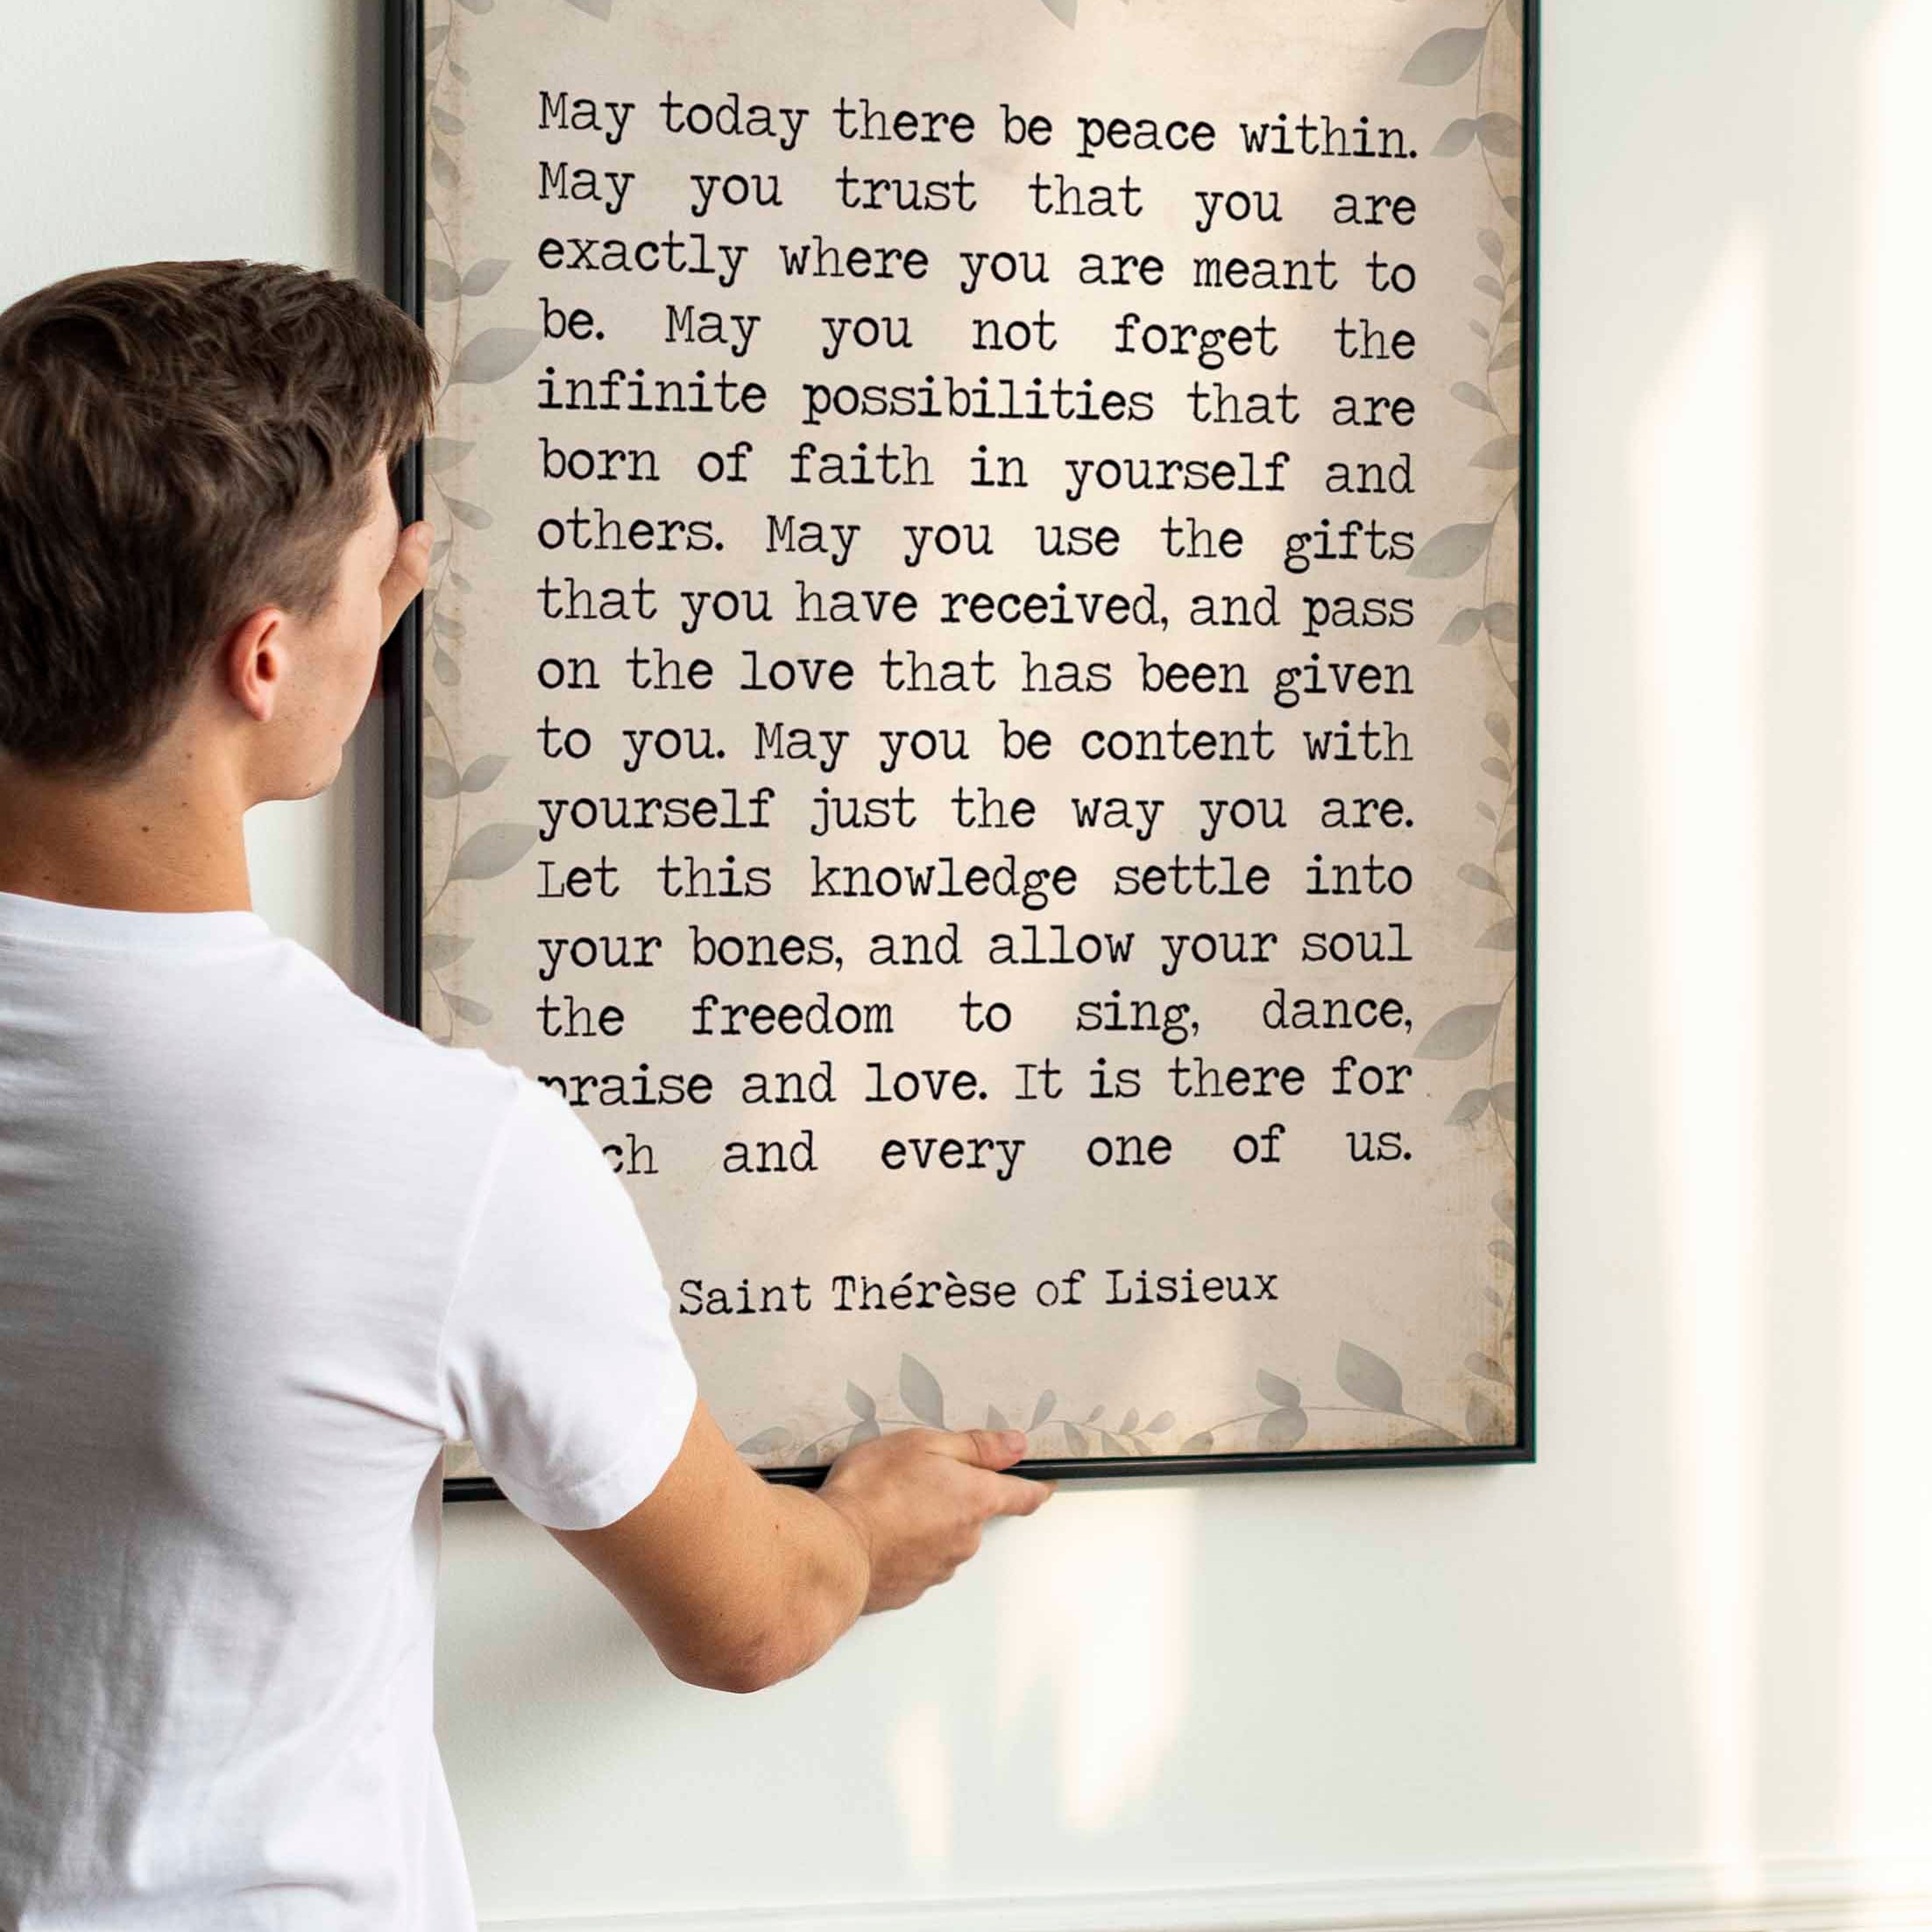 May today there be peace within.
May you trust that you are
exactly where you are meant to
be. May you not forget the
infinite possibilities that are
born of faith in yourself and
others. May you use the gifts
that you have received, and pass
on the love that has been given
to you. May you be content with
yourself just the way you are.
Let this knowledge settle into
your bones, and allow your soul
the freedom to sing, dance,
praise and love. It is there for
and every one of us.
Saint Thérèse of Lisieux